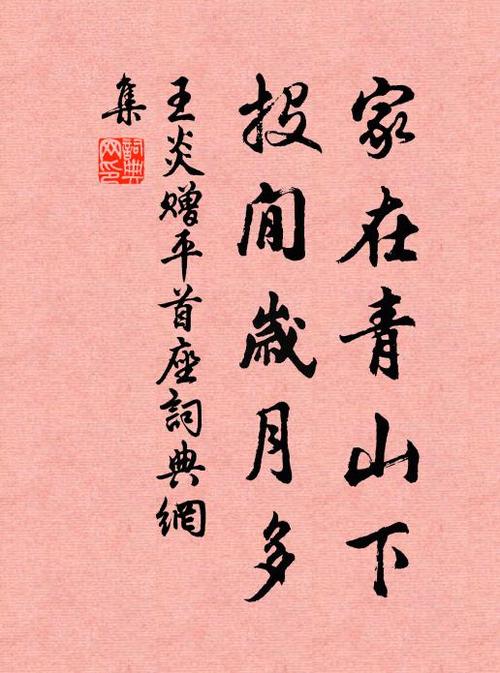 家在青山下
投閒歲月多
王炎贈平首座詞典網
集
詞典
網印